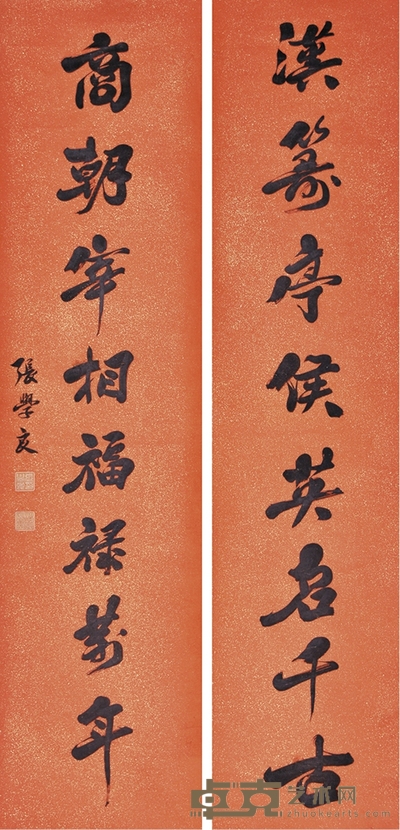 漢壽亭侯英名千古
商朝宰相福禄萬年
張學良
卓克艺术网
zhuokearts.com